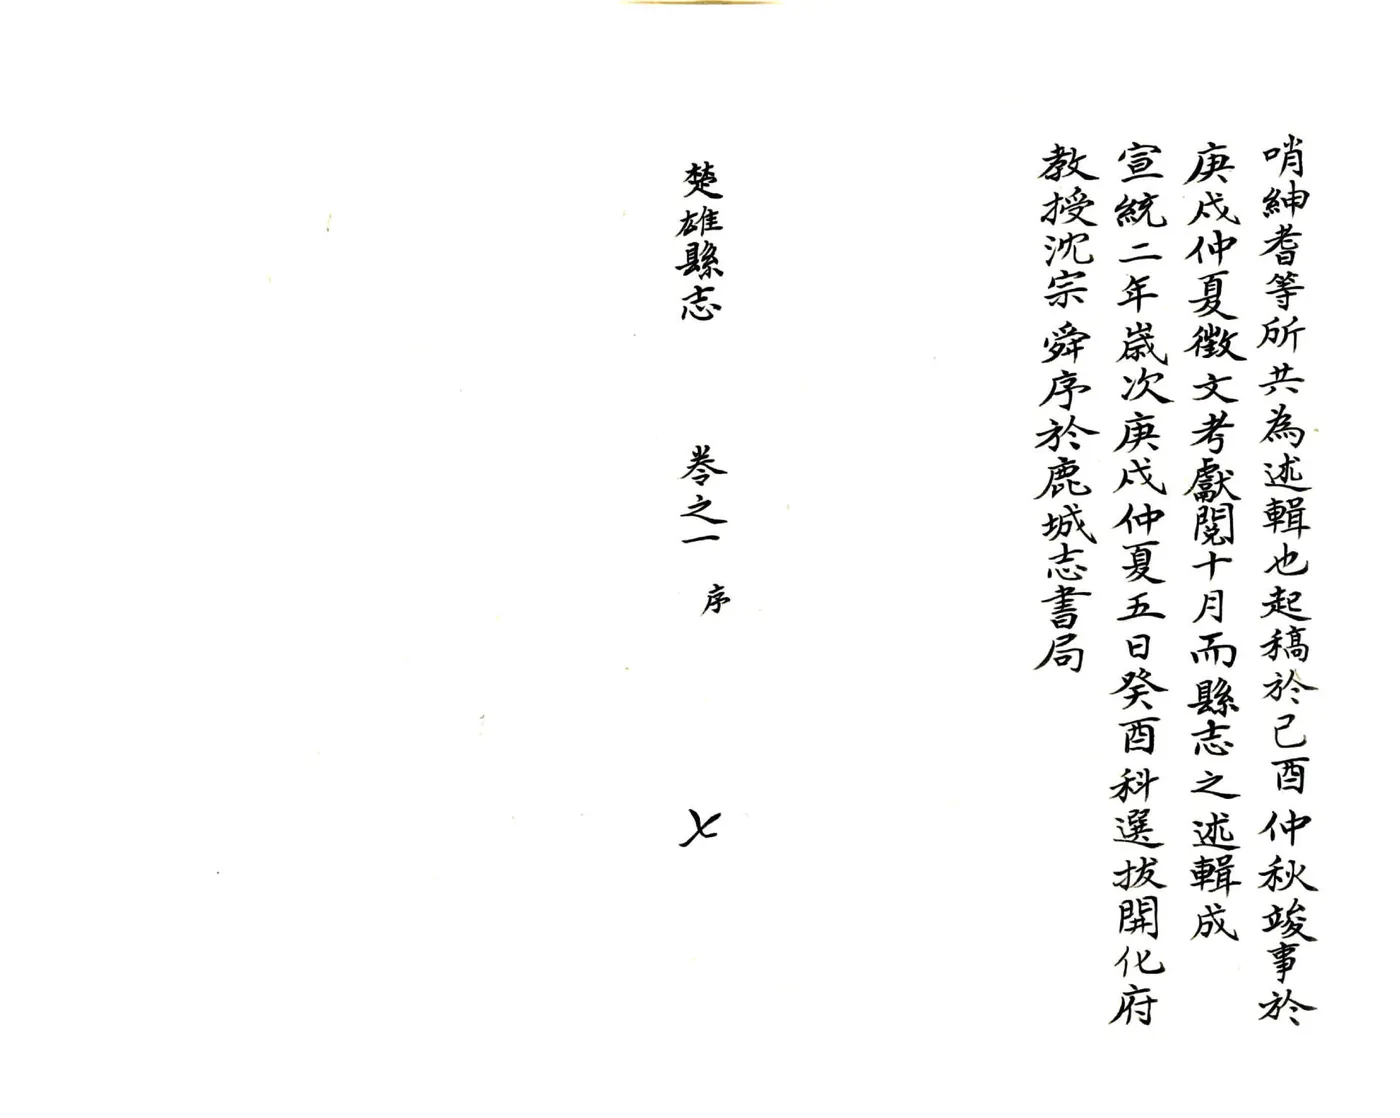 哨紳耆等所共為述輯也起稿於己酉仲秋竣事於
庚戌仲夏徵文考獻閱十月而縣志之述輯成
宣統二年歲次庚戌仲夏五日癸酉科選拔開化府
教授沈宗舜序於鹿城志書局
楚雄縣志 卷之一 序 七